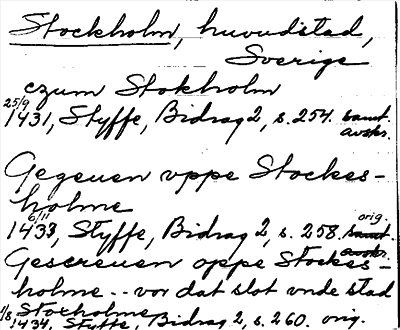 Stockholm, huvudstad,
Sverige
czum Stokholm
25/9 1431, Styffe, Bidrag 2, s. 254. samt. avskr.
Gegeuen vppe Stockes-
holme
6/11 1433, Styffe, Bidrag 2, s. 258. orig. samt. avskr.
Gescreuen oppe Stockes-
holme .. vor dat slot vnde stad
Stoxholme
1/8 1434, Styffe, Bidrag 2, s. 260. orig.